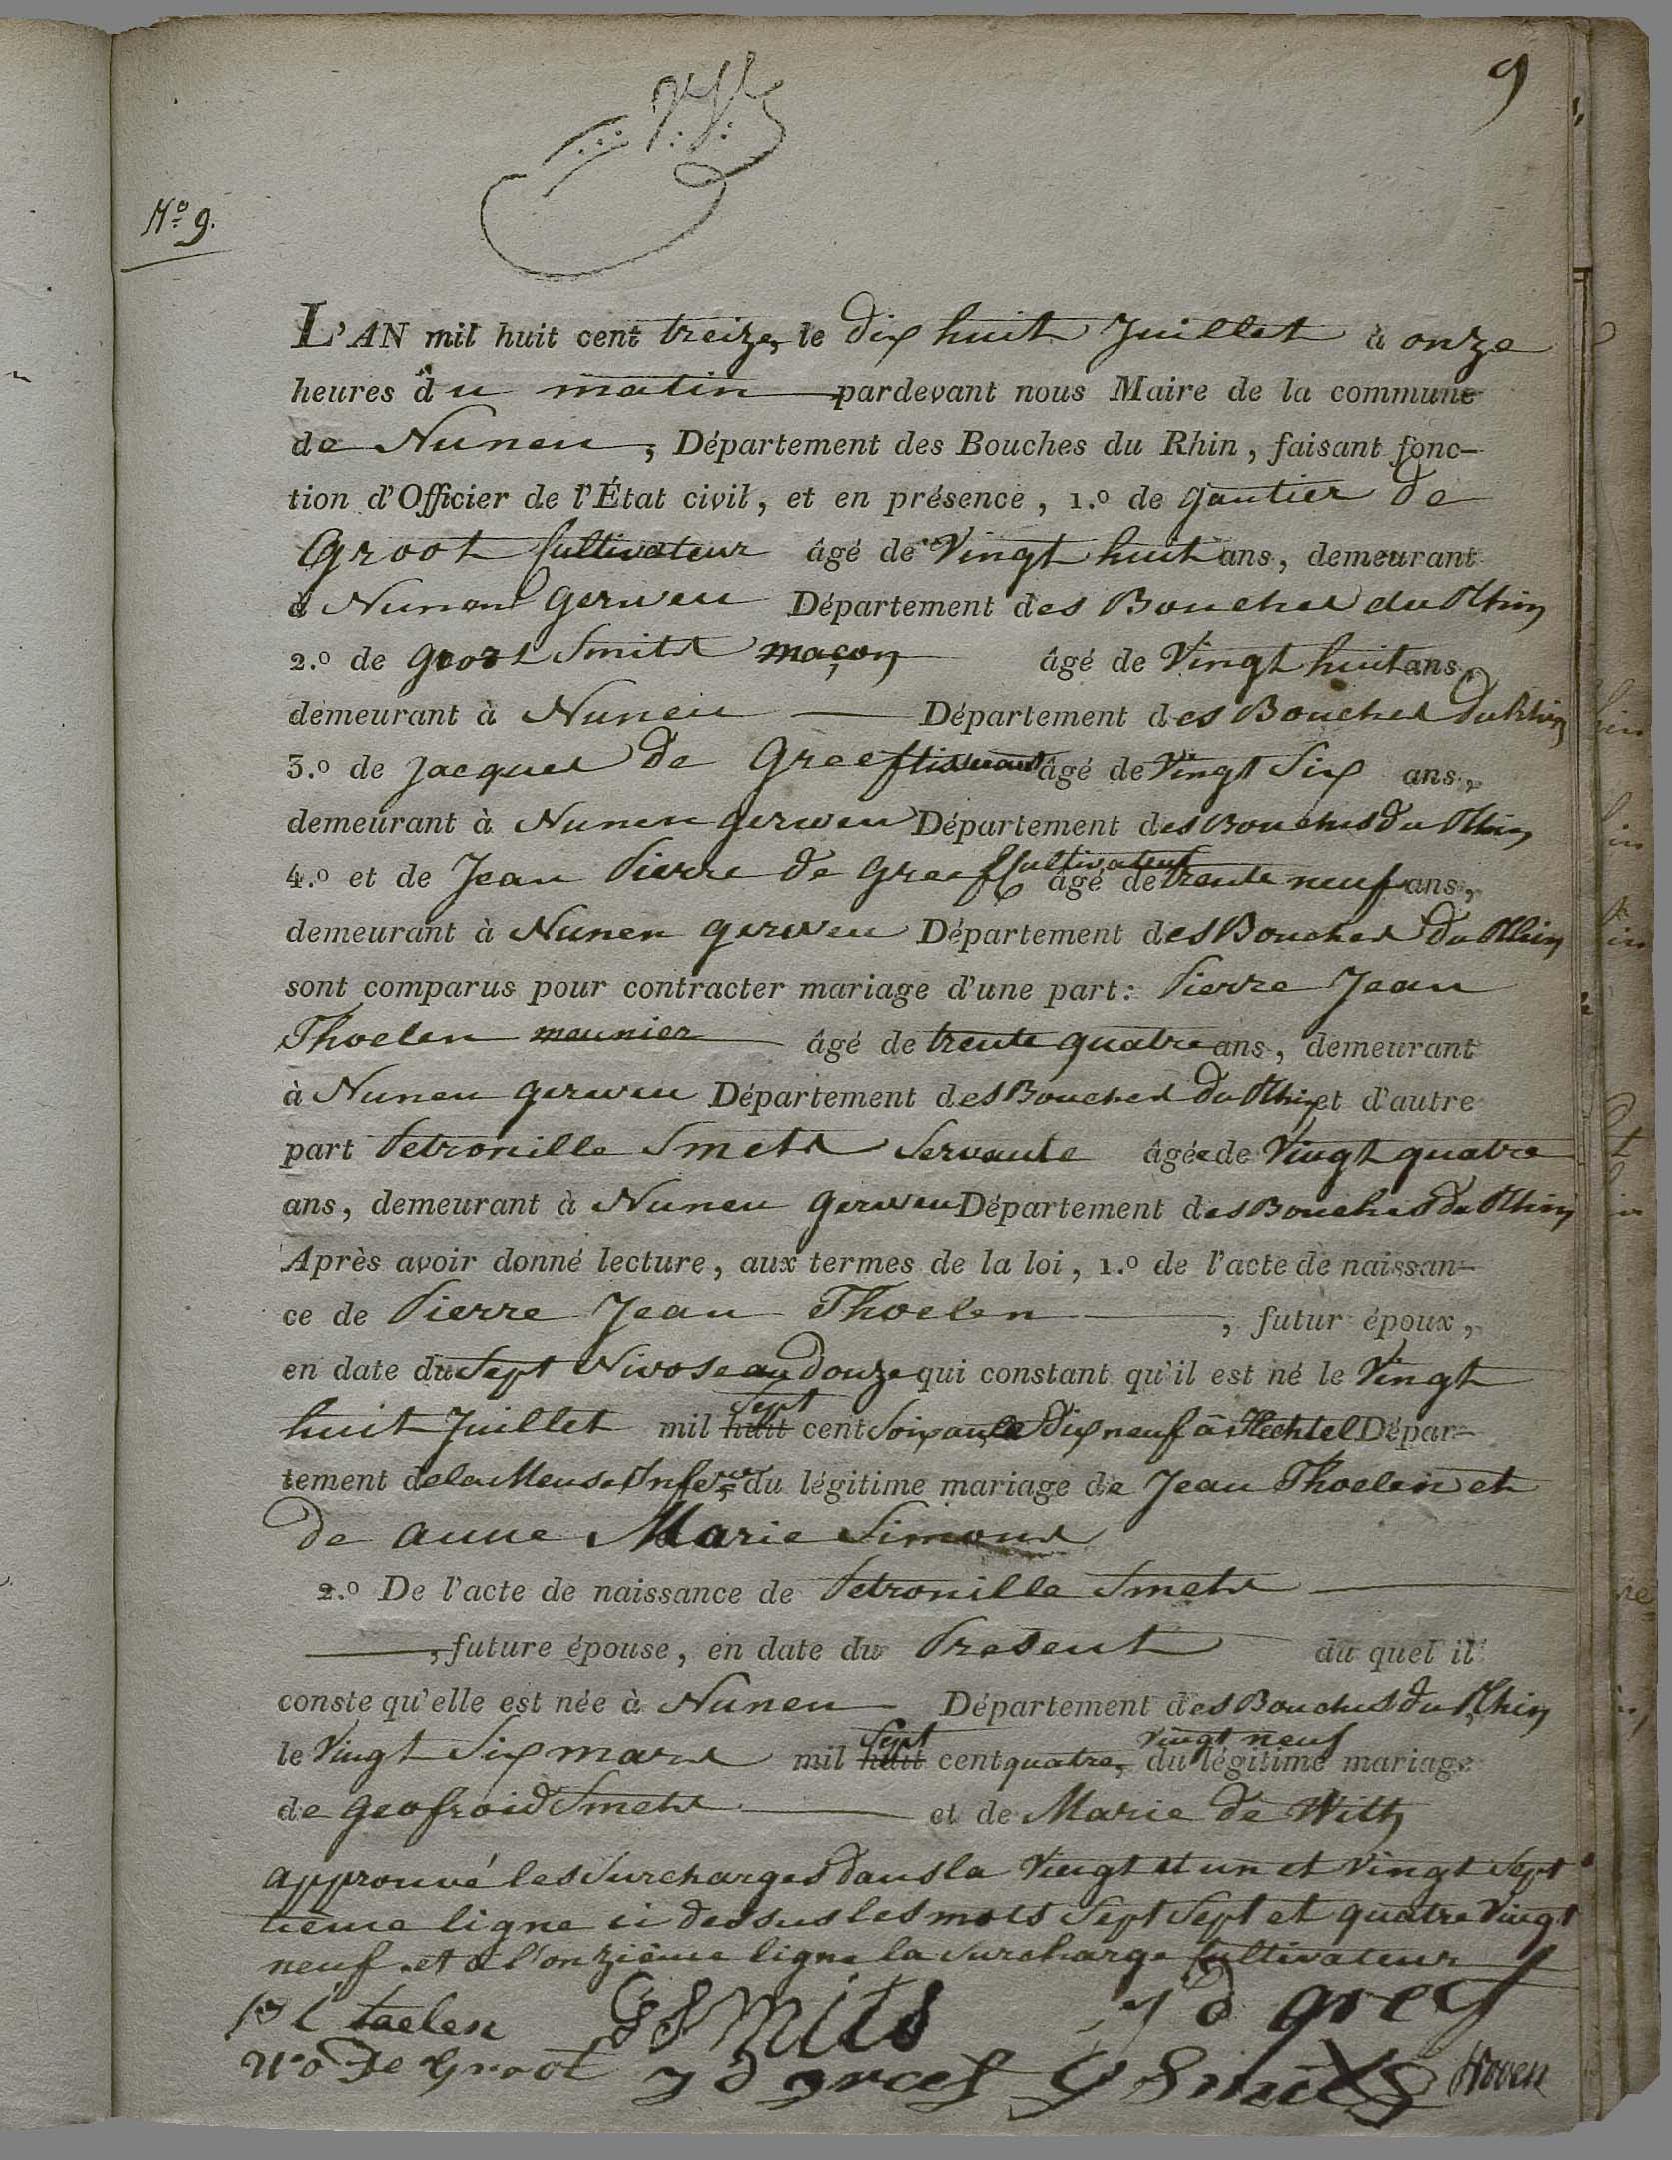 9
Nº 9.
L'AN mil huit cent treize, le dix huit Juillet à onze
heures du matin pardevant nous Maire de la commune
de Nunen, Département des Bouches du Rhin, faisant fonc-
tion d'Officier de l'État civil, et en présence, 1.º de gautier de
Groot Cultivateur âgé de Vingt huit ans, demeurant
à Nunen Gerwen Département des Bouches du Rhin
2.º de goort Smits maçon âgé de Vingt huit ans,
demeurant à Nunen Département des Bouches du Rhin
3.º de Jacques de Greef tisserand âgé de Vingt Six ans,
demeurant à Nunen gerwen Département des Bouches du Rhin
4.º et de Jean Pierre de Greef Cultivateur âgé de trente neuf ans,
demeurant à Nunen gerwen Département des Bouches du Rhin
sont comparus pour contracter mariage d'une part: Pierre Jean
Thoelen meunier âgé de trente quatre ans, demeurant
à Nunen gerwen Département des Bouches du Rhin et d'autre
part Petronille Smets Servante âgée de Vingt quatre
ans, demeurant à Nunen gerwen Département des Bouches du Rhin
Après avoir donné lecture, aux termes de la loi, 1.º de l'acte de naissan-
ce de Pierre Jean Thoelen, futur époux,
en date du Sept Nivose an douze qui constant qu'il est né le Vingt
huit Juillet mil huit Sept cent Soixante dix neuf à Hechtel Dépar-
tement de la Meuse Infere du légitime mariage de Jean Thoelen et
de anne Marie Simons
2.º De l'acte de naissance de Petronille Smets
, future épouse, en date du Present du quel il
conste qu'elle est née à Nunen Département des Bouches du Rhin
le Vingt Six mars mil huit Sept cent quatre, vingt neuf du légitime mariage
de geofroid Smets et de Marie de With
approuvé les Surcharges dans la Vingt et un et Vingt Sept
tieme ligne ci dessus les mots Sept Sept et quatre Vingt
neuf. et à l'onzième ligne la Surcharge Cultivateur
P I taelen G Smits J d greef
de Groot J d greef G Smits Hoven